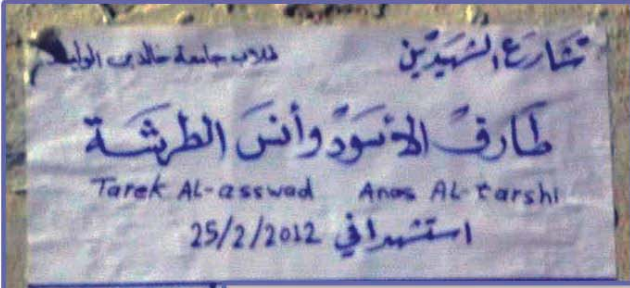 شارع الشهيدين
طلاب جامعة خالد بن الوليد
طارق الأسود وأنس الطرشة
Tarek AL-asswad Anas AL-tarshi
استشهدا في 25/2/2012